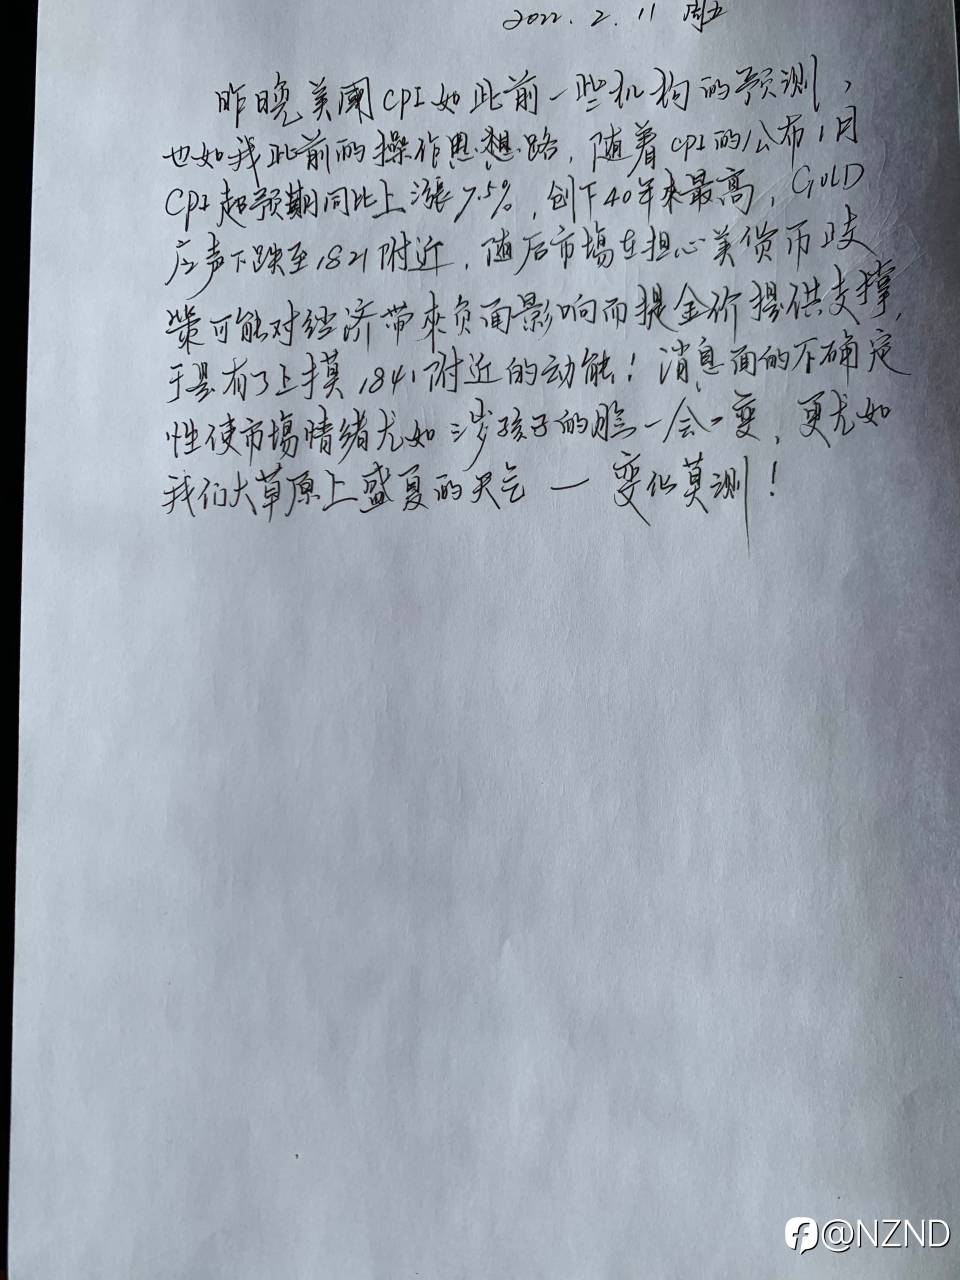 2022.2.11 周五
昨晚美國CPI如此前一些机构的预测,
也如我此前的操作思想路,随着CPI的公布1月
CPI超预期同比上漲7.5%,创下40年來最高,GOLD
应声下跌至1821附近,随后市場在担心美货币政
策可能对经济带來负面影响而提金价提供支撑,
于是有了上摸1841附近的动能!消息面的不确定
性使市場情绪尤如3岁孩子的脸一会一变,更尤如
我们大草原上盛夏的天气一变化莫测!
@NZND